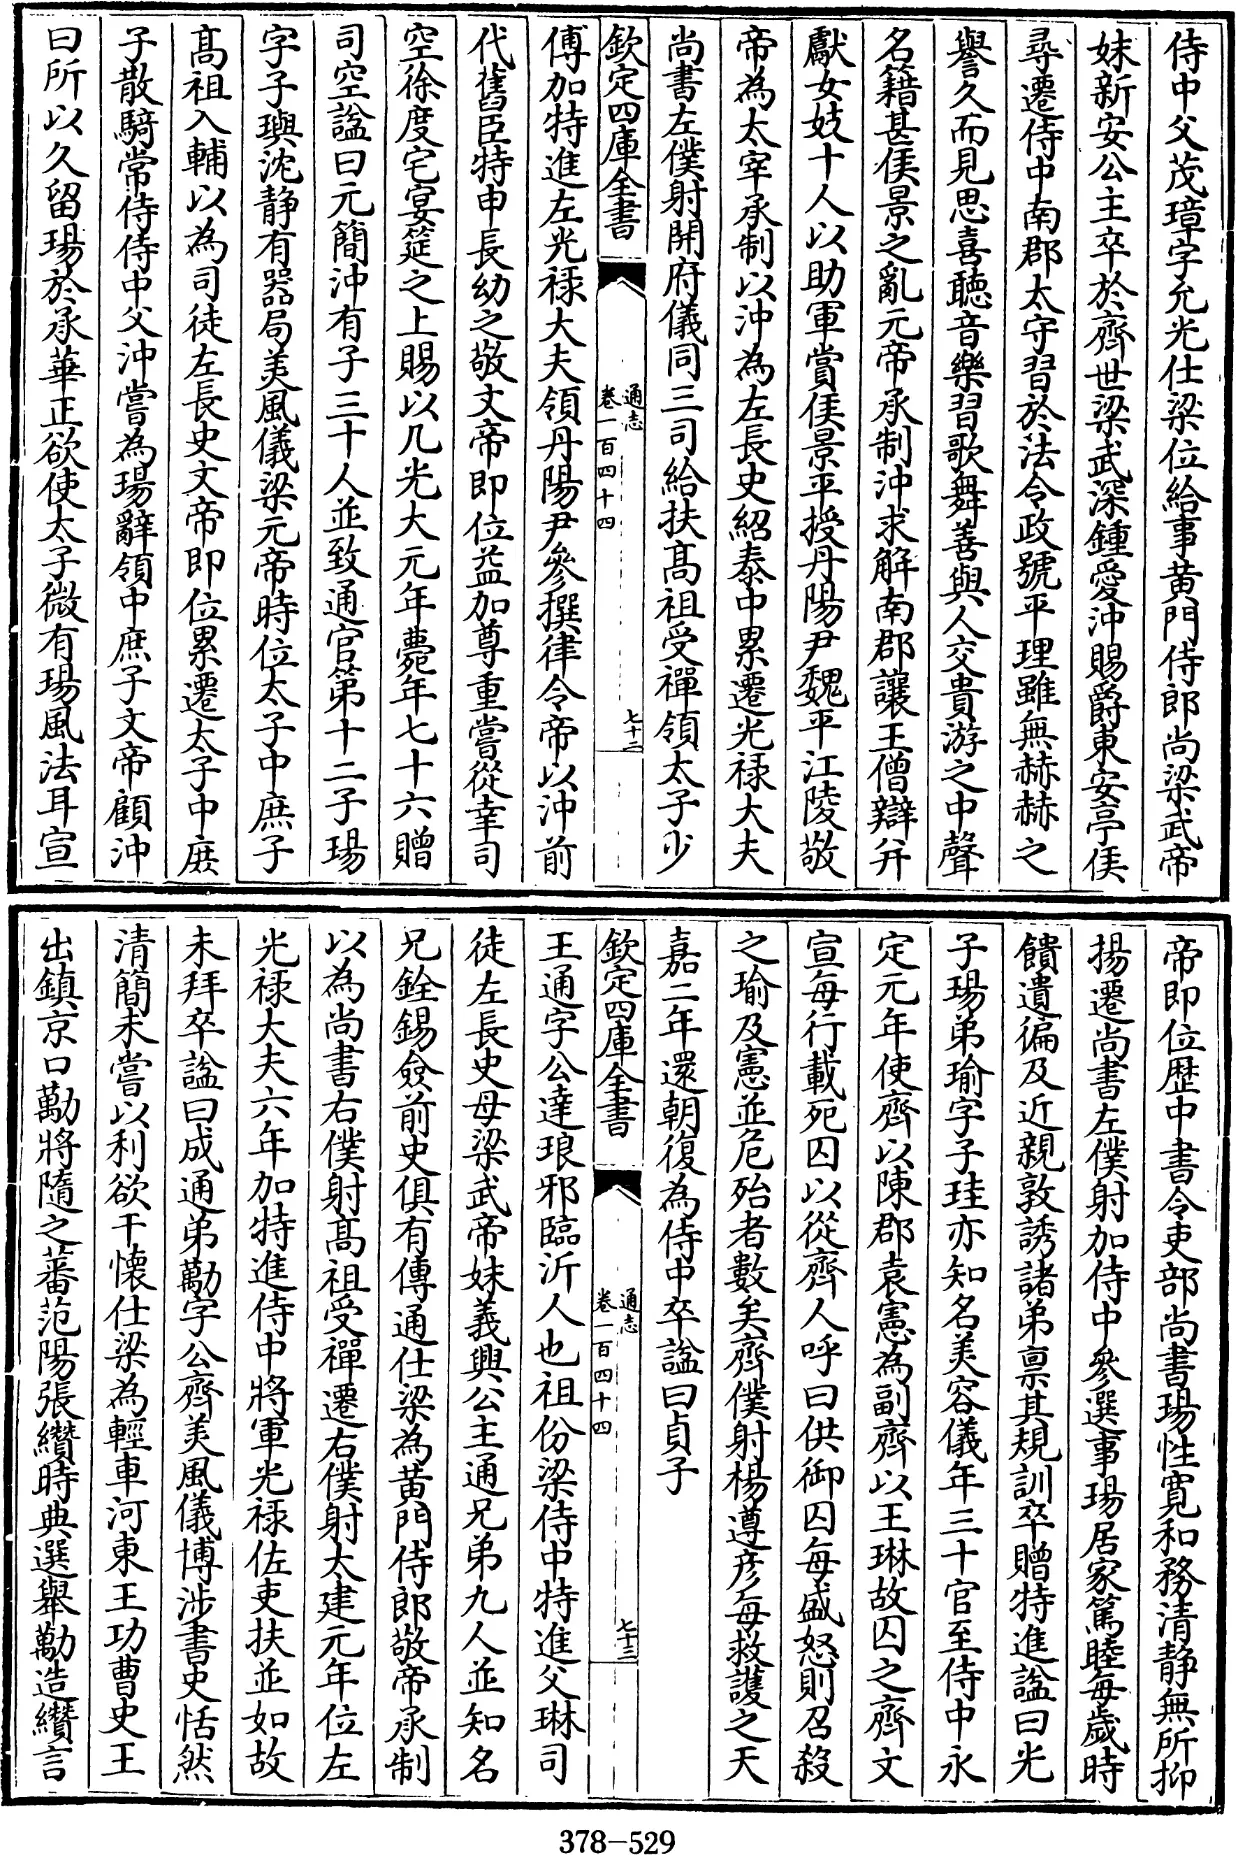 侍中父茂璋字允光仕梁位給事黄門侍郎尚梁武帝
妹新安公主卒於齊世梁武深鍾愛沖賜爵東安亭侯
尋遷侍中南郡太守習於法令政號平理雖無赫赫之
譽久而見思喜聽音樂習歌舞善與人交貴游之中聲
名籍甚侯景之亂元帝承制沖求解南郡讓王僧辯并
獻女妓十人以助軍賞侯景平授丹陽尹魏平江陵敬
帝為太宰承制以沖為左長史紹泰中累遷光祿大夫
尚書左僕射開府儀同三司給扶髙祖受禪領太子少
欽定四庫全書
通志
卷一百四十四
七十二
傅加特進左光祿大夫領丹陽尹參撰律令帝以沖前
代舊臣特申長幼之敬文帝即位益加尊重嘗從幸司
空徐度宅宴筵之上賜以几光大元年薨年七十六贈
司空諡曰元簡沖有子三十人並致通官第十二子瑒
字子璵沈静有器局美風儀梁元帝時位太子中庶子
髙祖入輔以為司徒左長史文帝即位累遷太子中庶
子散騎常侍侍中父沖嘗為瑒辭領中庶子文帝顧沖
曰所以久留瑒於承華正欲使太子微有瑒風法耳宣
帝即位歴中書令吏部尚書瑒性寛和務清静無所抑
揚遷尚書左僕射加侍中參選事瑒居家篤睦每歲時
饋遺徧及近親敦誘諸弟禀其規訓卒贈特進諡曰光
子瑒弟瑜字子珪亦知名美容儀年三十官至侍中永
定元年使齊以陳郡袁憲為副齊以王琳故囚之齊文
宣每行載死囚以從齊人呼曰供御囚每盛怒則召殺
之瑜及憲並危殆者數矣齊僕射楊遵彦每救䕶之天
嘉二年還朝復為侍中卒諡曰貞子
欽定四庫全書
通志
卷一百四十四
七十三
王通字公達琅邪臨沂人也祖份梁侍中特進父琳司
徒左長史母梁武帝妹義興公主通兄弟九人並知名
兄銓錫僉前史俱有傳通仕梁為黄門侍郎敬帝承制
以為尚書右僕射髙祖受禪遷右僕射太建元年位左
光祿大夫六年加特進侍中將軍光祿佐吏扶並如故
未拜卒諡曰成通弟勱字公齊美風儀博涉書史恬然
清簡未嘗以利欲干懷仕梁為輕車河東王功曹史王
出鎮京口勱將隨之蕃范陽張纘時典選舉勱造纘言
378-529